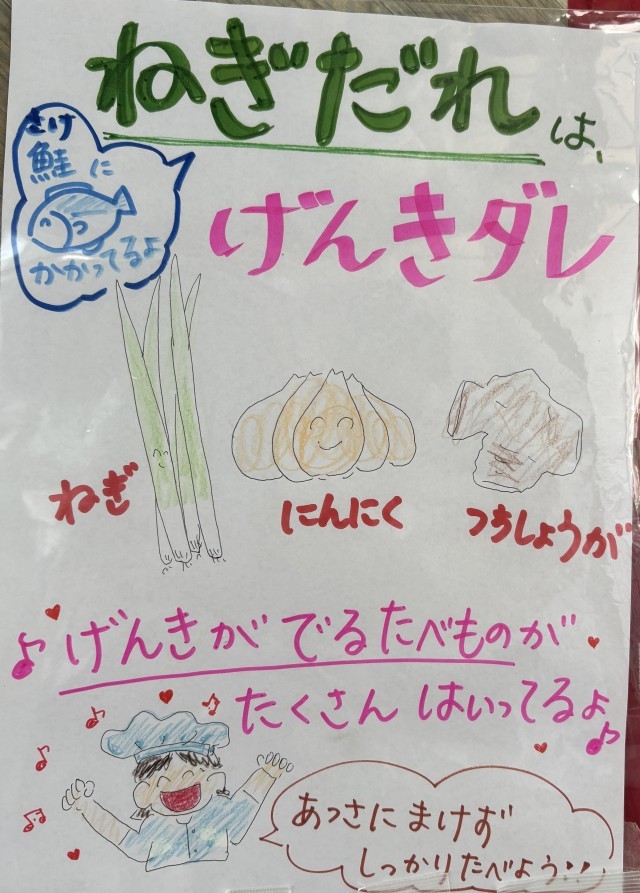 ねぎだれは、
さけ
鮭に
かかってるよ
げんきダレ
ねぎ
にんにく
つちしょうが
げんきがでるたべものが
たくさんはいってるよ
あっさにまけず
しっかりたべよう!!